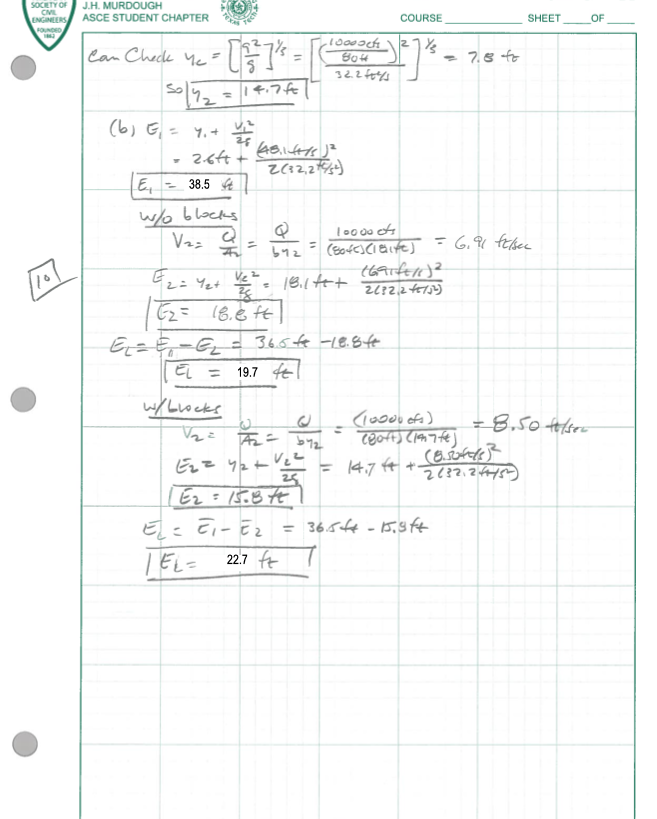 SOCIETY OF
CIVIL
ENGINEERS
FOUNDED
1852
J.H. MURDOUGH
ASCE STUDENT CHAPTER
COURSE ________ SHEET ____ OF ____
Can Check yc = [q²/g]^1/3 = [(10000cfs/80ft)²/32.2ft/s]^1/3 = 7.8 ft
So y2 = 14.7ft
(b) E1 = y1 + V1²/2g
= 2.6ft + (48.1ft/s)²/2(32.2ft/s²)
E1 = 38.5 ft
w/o blocks
V2 = Q/A2 = Q/by2 = 10000cfs/(80ft)(18.1ft) = 6.91 ft/sec
10
E2 = y2 + V2²/2g = 18.1ft + (6.91ft/s)²/2(32.2ft/s²)
E2 = 18.8 ft
EL = E1 - E2 = 36.5ft - 18.8ft
EL = 19.7 ft
w/blocks
V2 = Q/A2 = Q/by2 = (10000cfs)/(80ft)(14.7ft) = 8.50 ft/sec
E2 = y2 + V2²/2g = 14.7 ft + (8.50ft/s)²/2(32.2ft/s²)
E2 = 15.8 ft
EL = E1 - E2 = 36.5ft - 15.8ft
EL = 22.7 ft